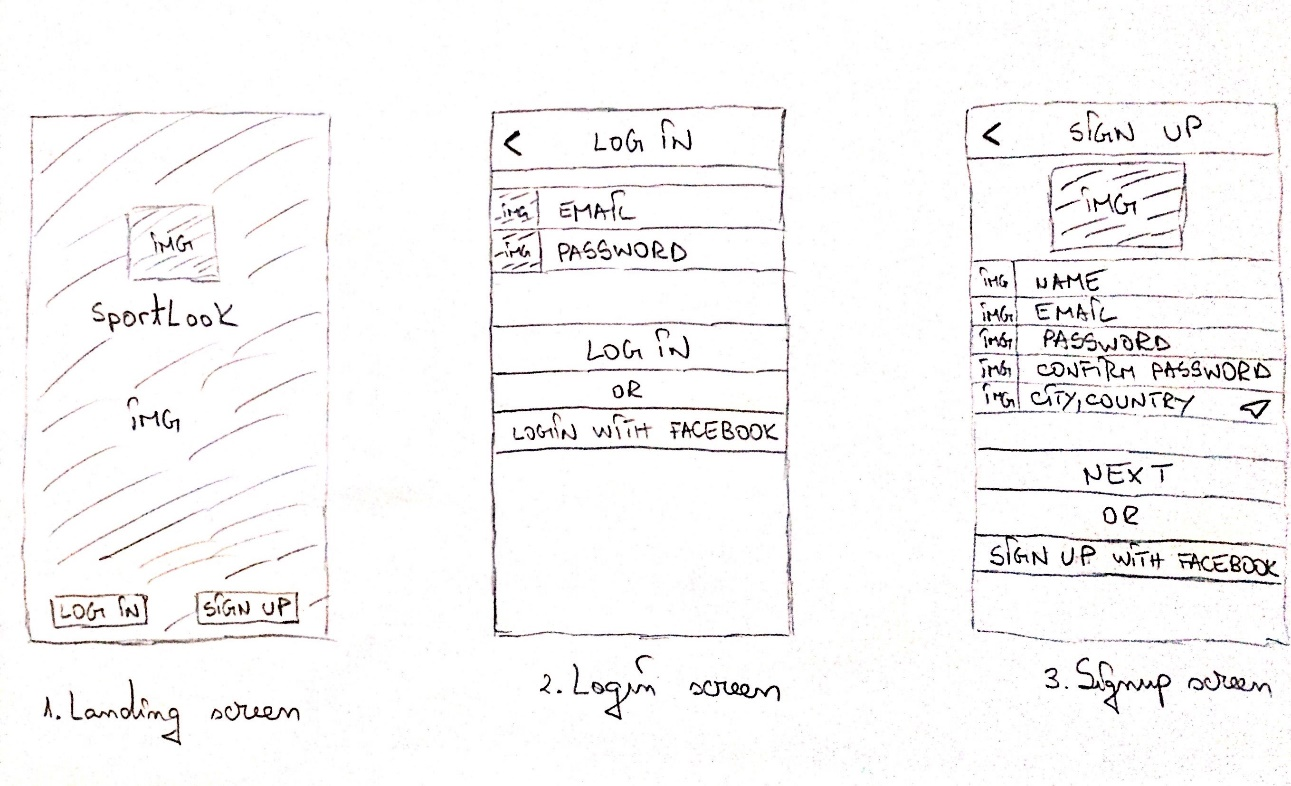 IMG
SportLook
IMG
LOG IN
SIGN UP
1. Landing screen
<
LOG IN
IMG EMAIL
IMG PASSWORD
LOG IN
OR
LOGIN WITH FACEBOOK
2. Login screen
<
SIGN UP
IMG
IMG NAME
IMG EMAIL
IMG PASSWORD
IMG CONFIRM PASSWORD
IMG CITY, COUNTRY
NEXT
OR
SIGN UP WITH FACEBOOK
3. Signup screen